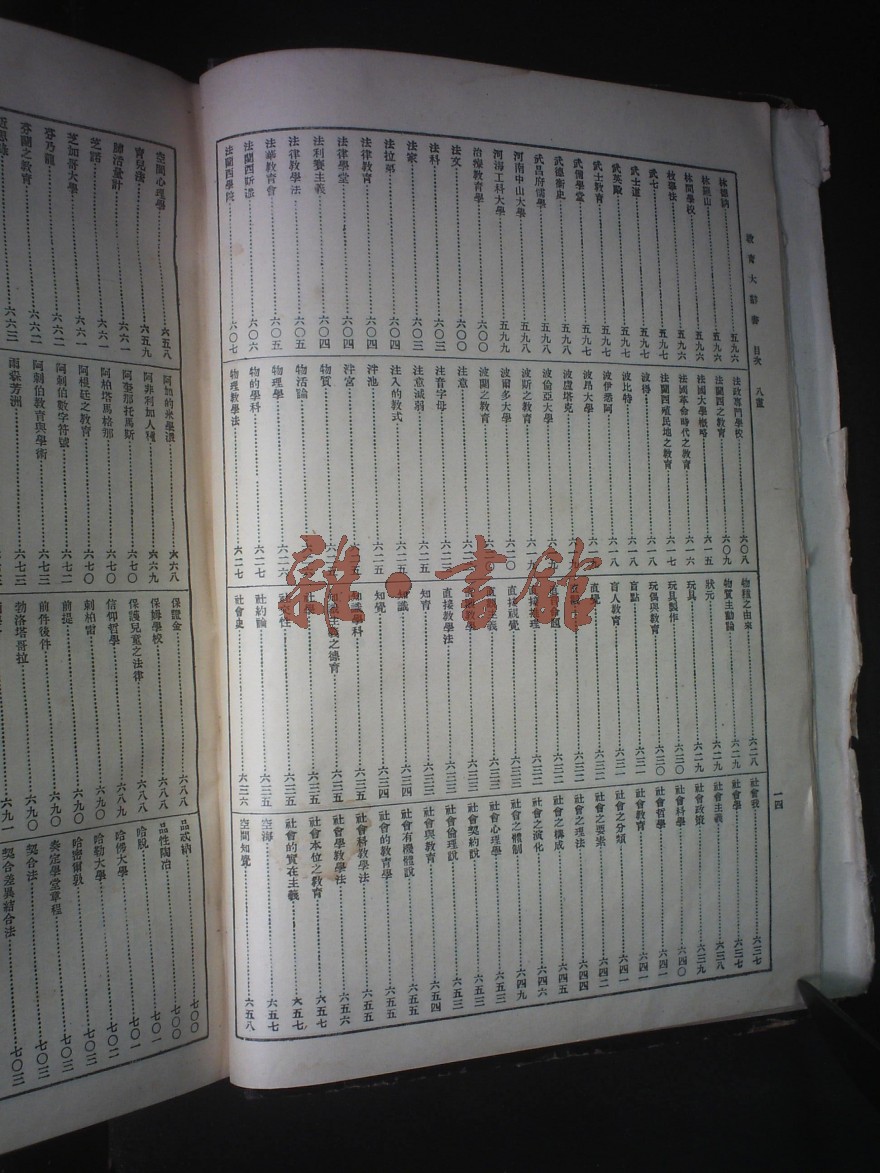 教育大辭書 目次 八畫
一四
林德納……五九六
林羅山……五九六
林間學校……五九六
枚舉法……五九六
武七……五九七
武士道……五九七
武英殿……五九七
武士教育……五九七
武備學堂……五九七
武德衛史……五九八
武昌府儒學……五九八
河南中山大學……五九九
河海工科大學……五九九
治療教育學……六〇〇
法文……六〇〇
法科……六〇三
法家……六〇三
法拉……六〇四
法律教育……六〇四
法律學堂……六〇四
法利賽主義……六〇四
法律教學法……六〇五
法華教育會……六〇五
法蘭西斯派……六〇六
法蘭西學院……六〇七
法政專門學校……六〇八
法蘭西之教育……六〇九
法國大學概略……六一五
法國革命時代之教育……六一六
法蘭西殖民地之教育……六一七
波得……六一八
波比特……六一八
波伊悉阿……六一八
波昂大學……六一九
波盧塔克……六一九
波倫亞大學……六一九
波斯之教育……六一九
波爾多大學……六二〇
波蘭之教育……六二〇
注意……六二
注音字母……六二三
注意減弱……六二五
注入的教式……六二五
泮池……六二五
泮宮……六二五
物質……六二五
物活論……六二六
物理學……六二六
物的學科……六二七
物理教學法……六二七
物種之由來……六二八
物質主動論……六二九
狀元……六二九
玩具……六二九
玩具製作……六三〇
玩偶與教育……六三〇
盲點……六三一
盲人教育……六三一
直覺……六三二
直觀……六三二
直接推理……六三二
直接視覺……六三二
直觀主義……六三三
直觀教學……六三三
直接教學法……六三三
知育……六三三
知識……六三四
知覺……六三四
知識學科……六三五
知識主義之德育……六三五
社學……六三五
社交性……六三五
社約論……六三五
社會史……六三六
社會我……六三七
社會學……六三七
社會主義……六三八
社會政策……六三九
社會科學……六四〇
社會哲學……六四一
社會教育……六四一
社會之分類……六四一
社會之要素……六四二
社會之理法……六四四
社會之構成……六四五
社會之演化……六四六
社會之體制……六四九
社會心理學……六五三
社會契約說……六五三
社會倫理說……六五三
社會與教育……六五四
社會有機體說……六五五
社會的教育學……六五五
社會科教學法……六五五
社會學教學法……六五六
社會本位之教育……六五七
社會的實在主義……六五七
空海……六五七
空間知覺……六五八
空間心理學……六五八
育兒法……六五九
肺活量計……六六一
芝諾……六六一
芝加哥大學……六六二
芬乃龍……六六二
芬蘭之教育……六六二
近思錄……六六三
阿加的米學派……六六八
阿非利加人種……六六九
阿奎那托馬斯……六七〇
阿柏塔馬格那……六七〇
阿根廷之教育……六七〇
阿剌伯數字符號……六七二
阿剌伯教育與學術……六七三
雨森芳洲……六七三
保證金……六八八
保姆學校……六八八
保護兒童之法律……六八八
信仰哲學……六八九
剌柏雷……六九〇
前提……六九〇
前件後件……六九〇
勃洛塔哥拉……六九一
品忒納……七〇〇
品性陶冶……七〇〇
哈脫……七〇一
哈佛大學……七〇一
哈勒大學……七〇二
哈密爾敦……七〇三
奏定學堂章程……七〇三
契合法……七〇三
契合差異結合法……七〇三
雜·書館